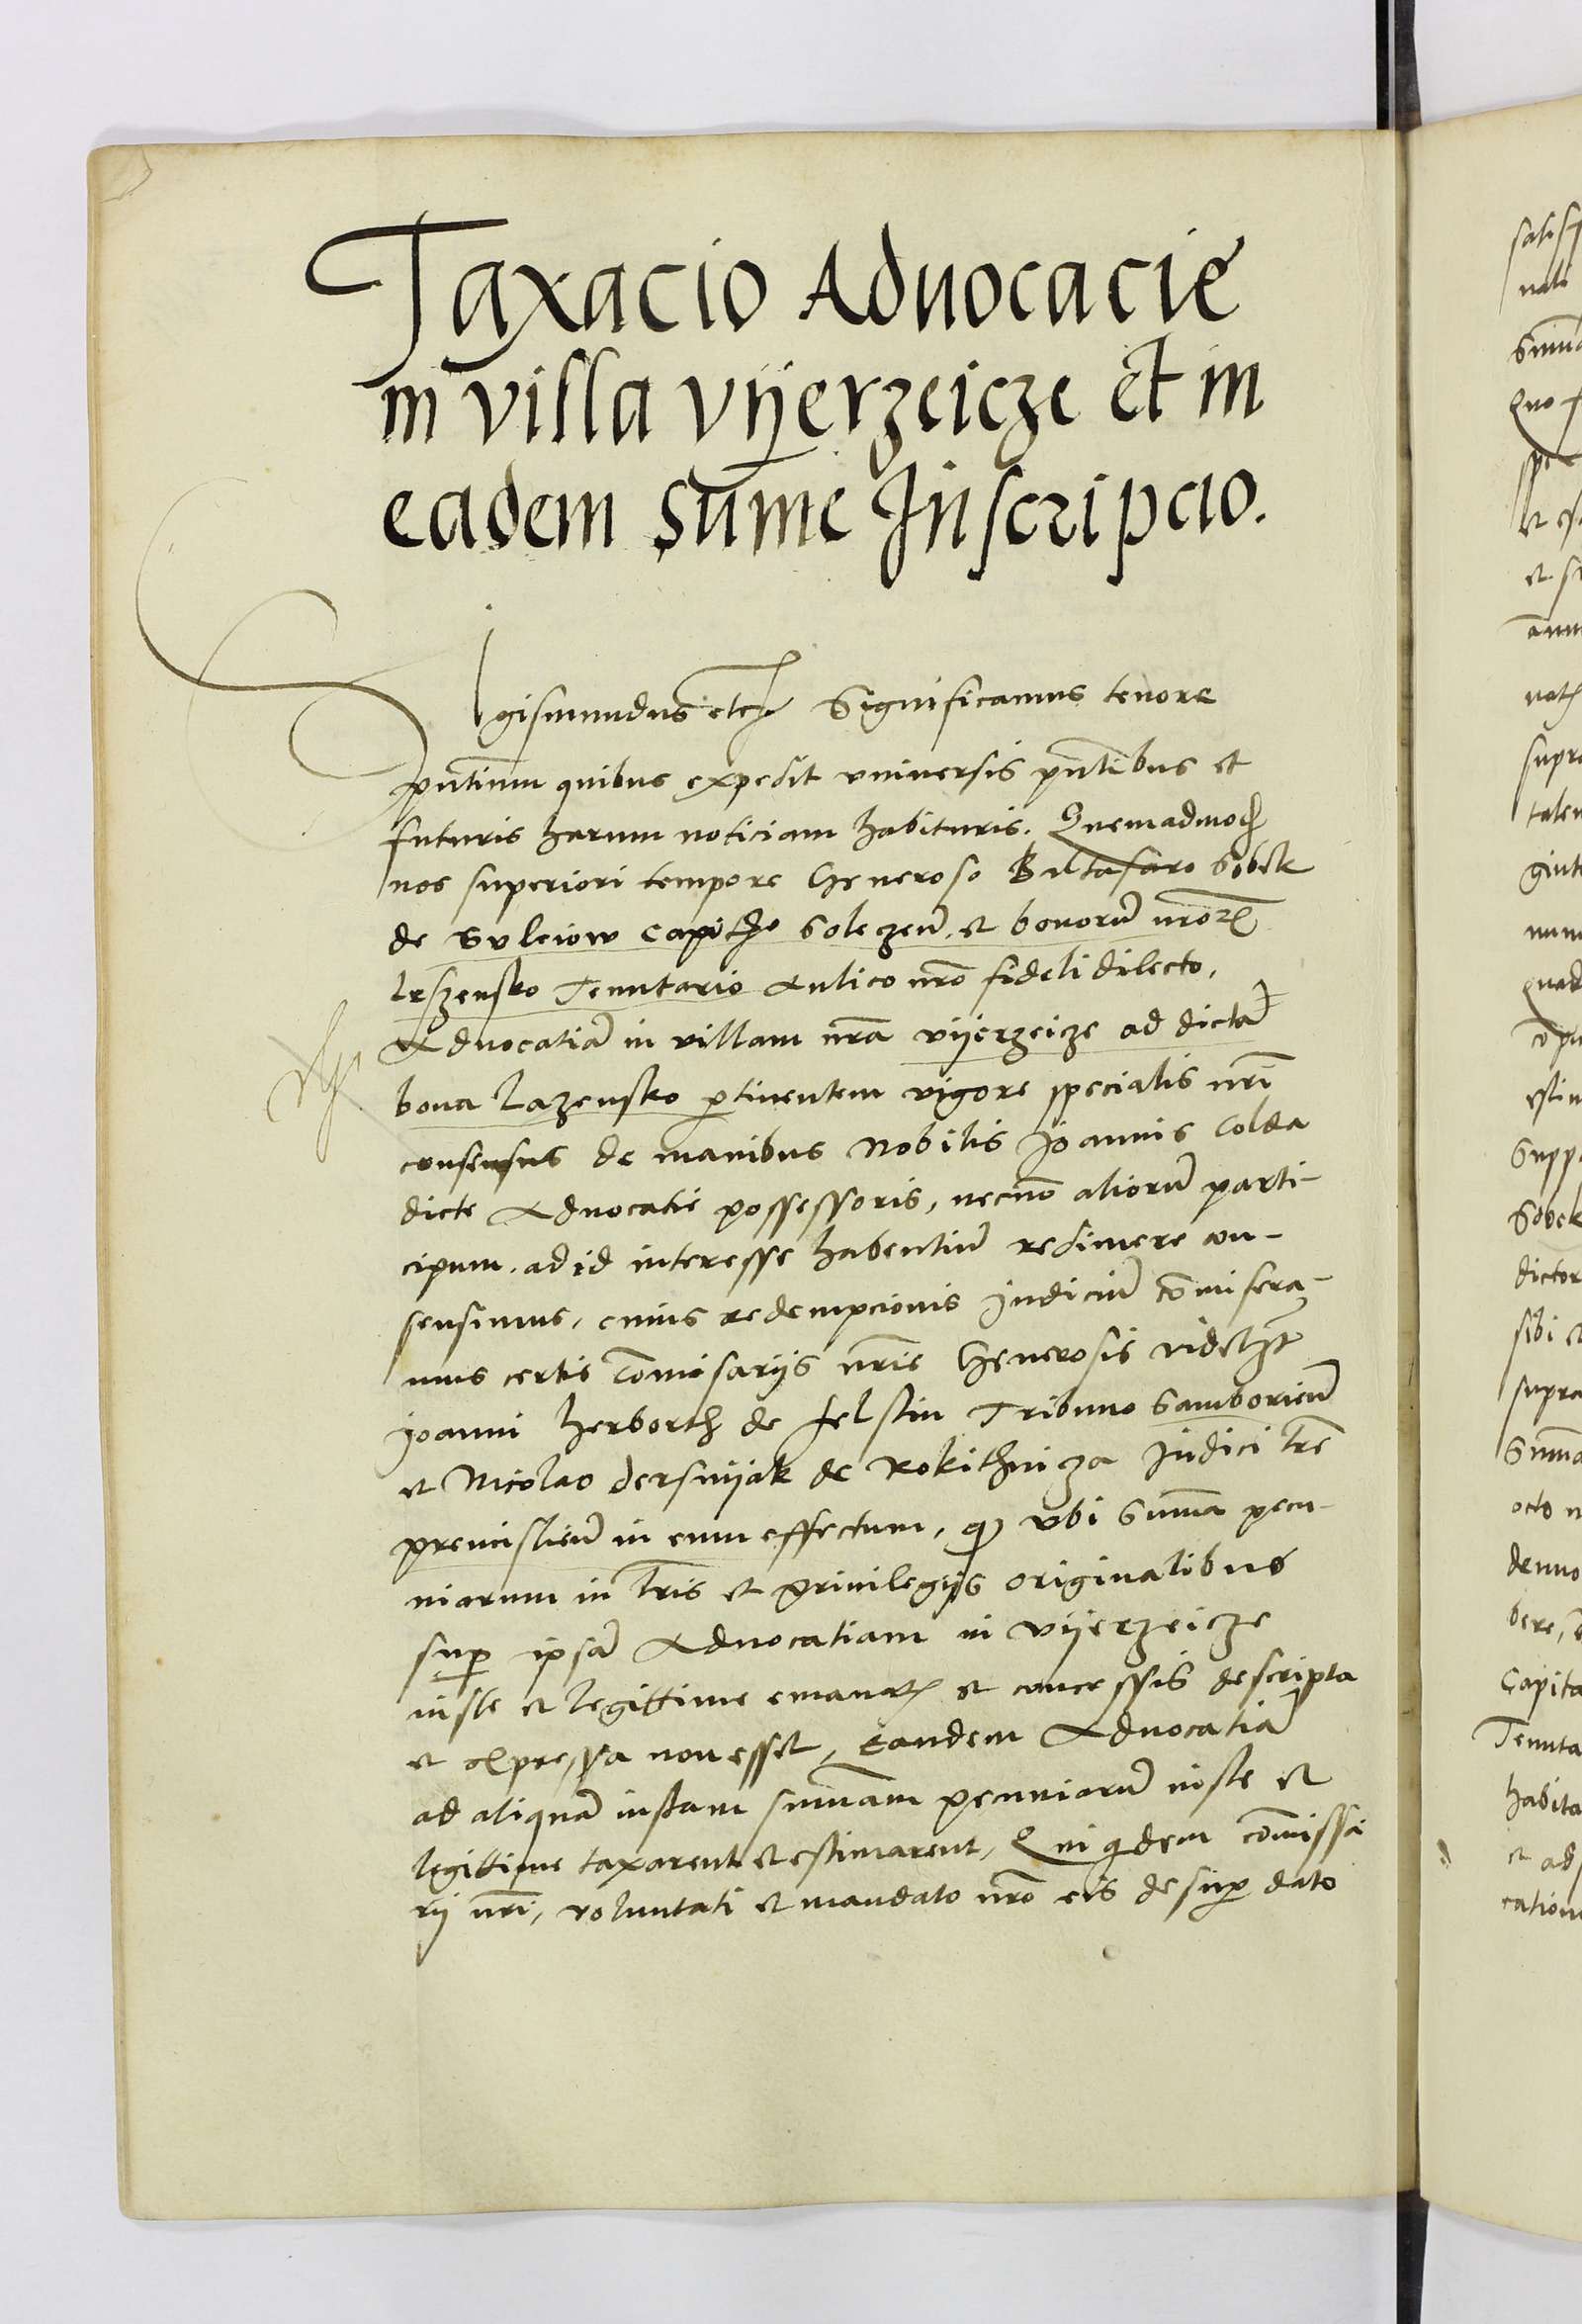 Taxacio Aduocacie
in villa vÿerzeicze et in
eadem sum̄e Inscripcio.
Sigismundus etc̃ Significamus tenore
pñtium quibus expedit vniuersis pñtibus et
futuris harum noticiam habituris. Quemadmod
nos superiori tempore Generoso Baltasaro Sobek
de Suleiow Capitº Soleczeñ. et bonorũ nrõꝝ
leszensko Tenutario Aulico nrõ fideli dilecto,
Aduocatiã in villam nrãm vÿerzeicze ad dicta
bona lazensko ꝑtinentem vigore specialis nrĩ
consensus de manibus Nobilis Joannis Colda
dicte Aduocatie possessoris, necnõ aliorũ parti-
cipum. ad id interesse habentiũ redimere con-
sensimus, cuius redempcionis Judiciũ com̄isera-
mus certis Com̄isarijs nrĩs Generosis videlꝫt
Joanni Herborth de felstin Tribuno Samborieñ
et Nicolao dersnÿak de Rokithnicza Judici trẽ
premislieñ in eum effectum, ꝙ vbi Summa pecu-
niarum in lrĩs et priuilegijs originalibus
suꝑ ipsã Aduocatiam in vÿerzeicze
iuste et legittime emanatꝭ et concessis descripta
et expressa non esset, Eandem Aduocatiã
ad aliquã iustam summam pecuniarũ iuste et
legittime taxarent et estimarent, Qui quidem com̄issa
rij nrĩ, voluntati et mandato nrõ eis desuꝑ dato